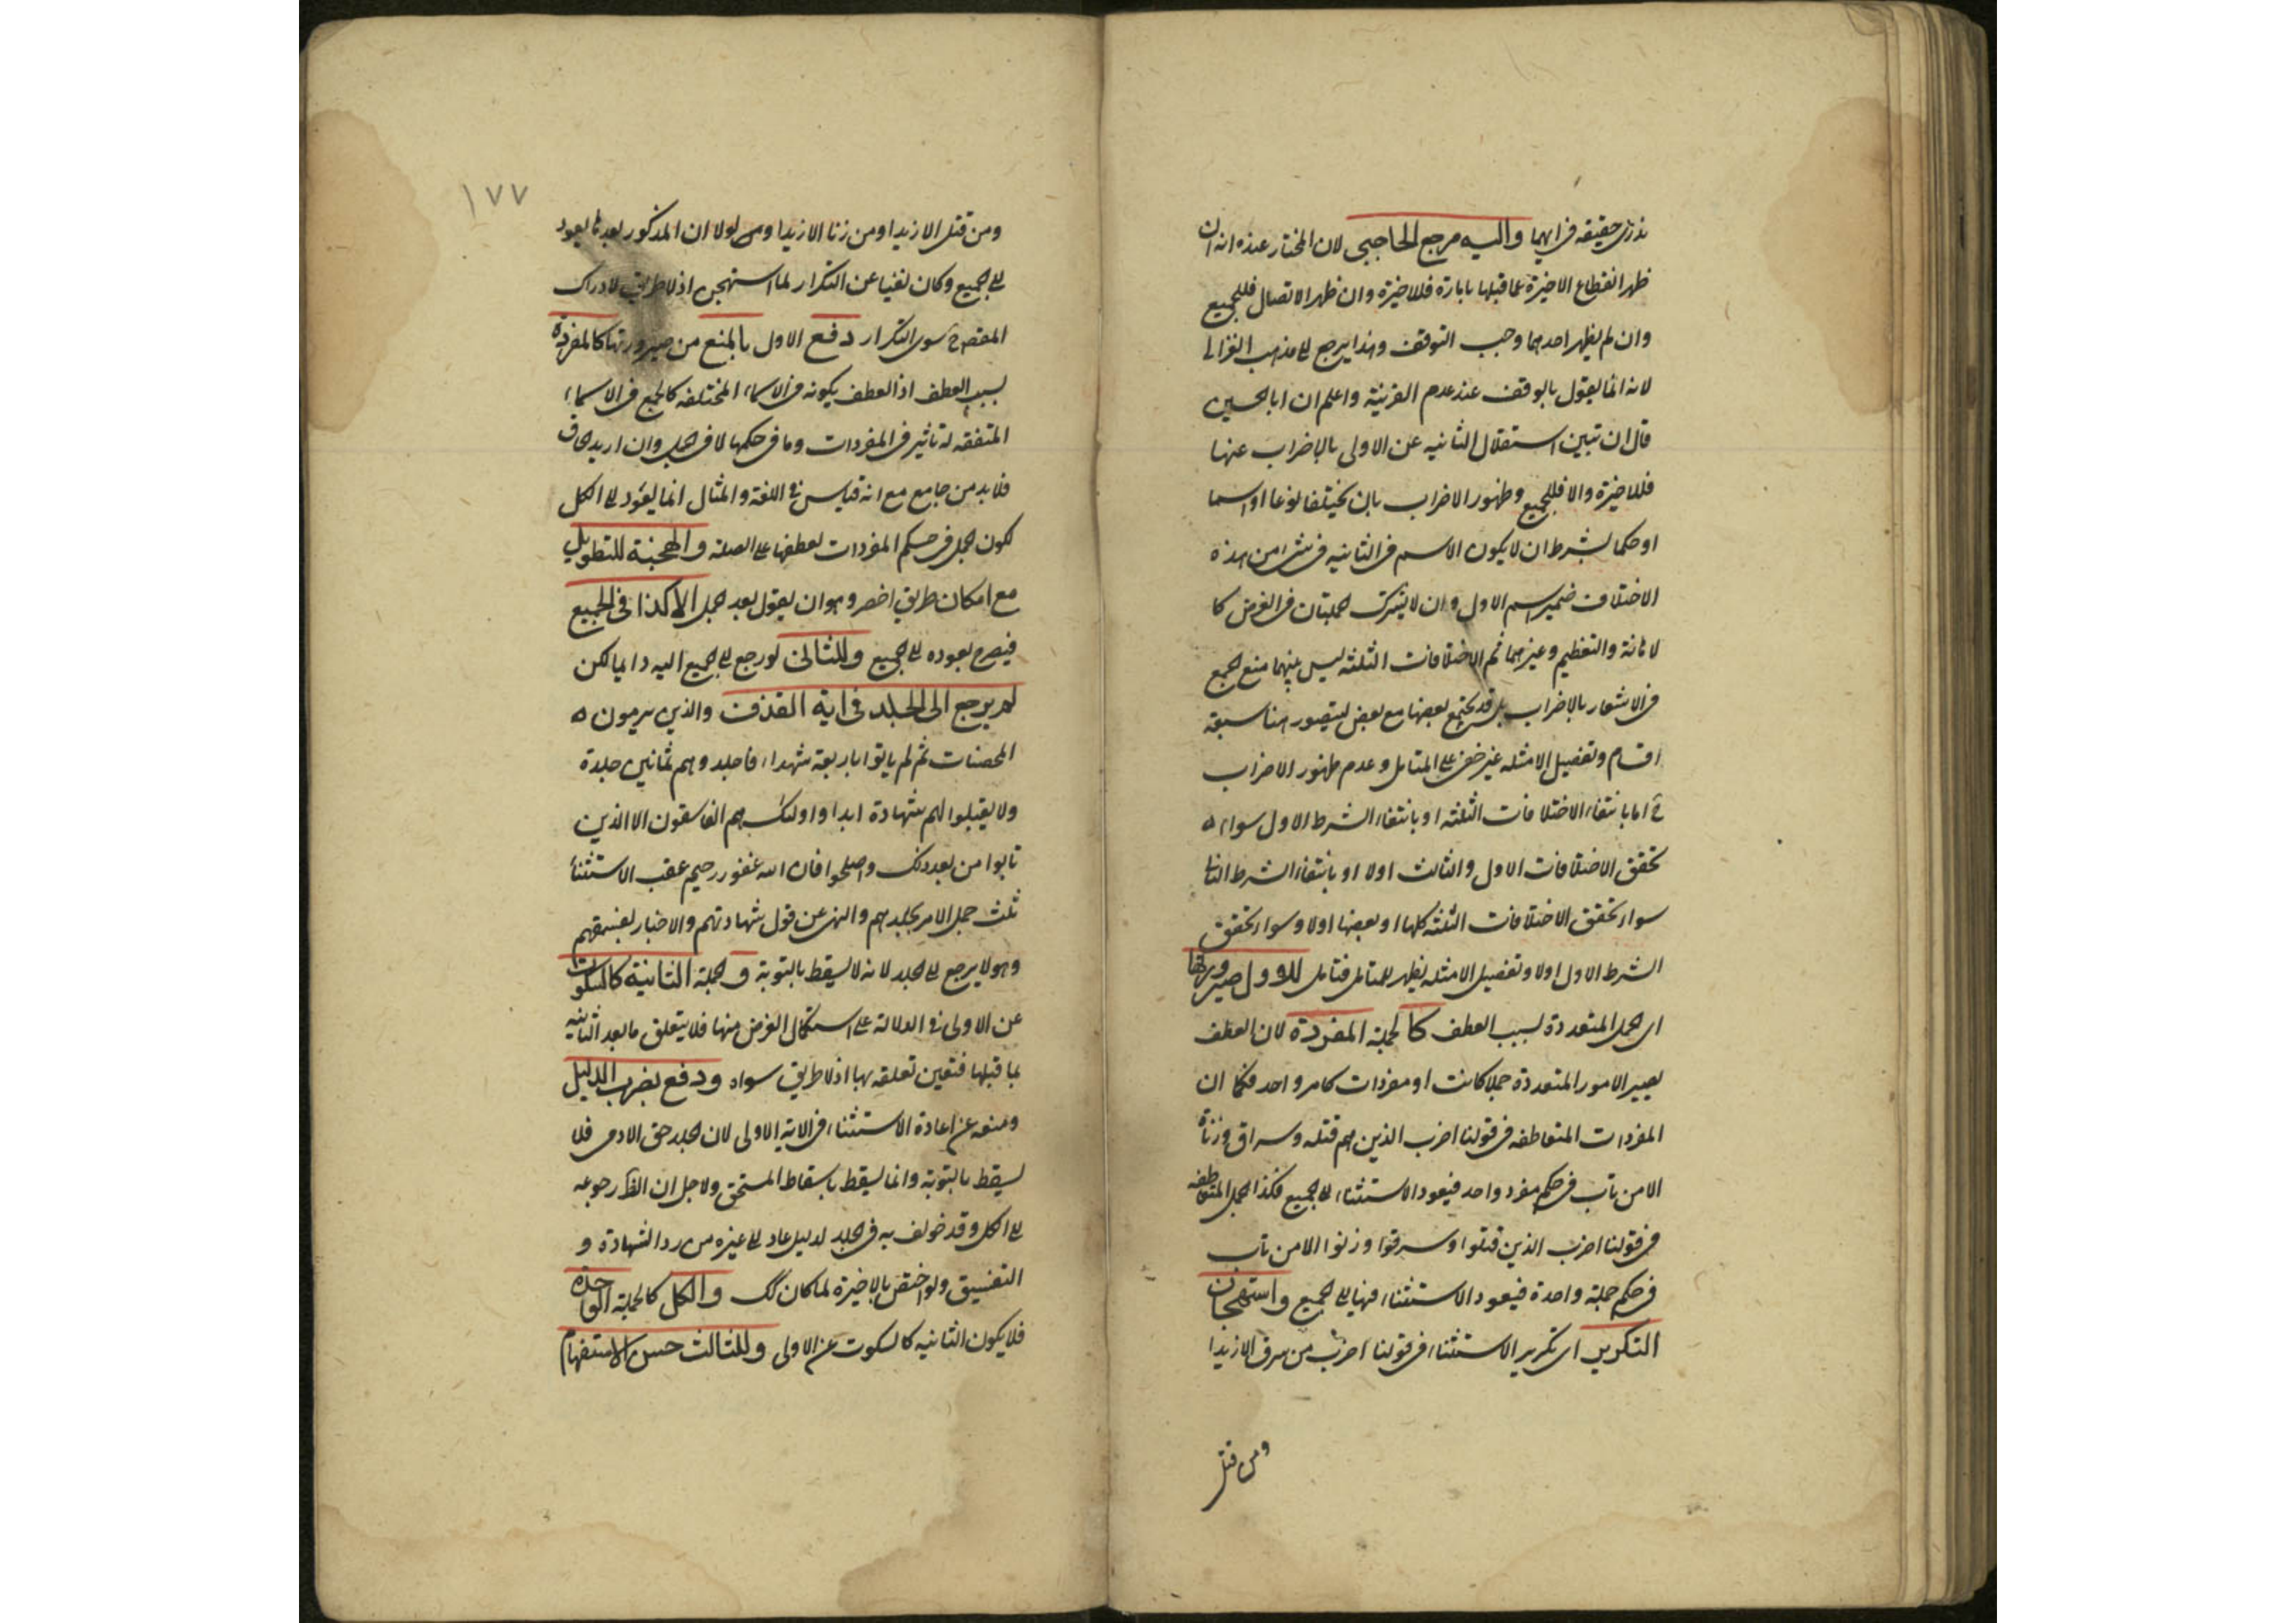 ندري حقيقة في ايهما واليه مرجع الحاجبي لان المختار عنده انه ان
ظهر انقطاع الاخيرة عما قبلها بامارة فللاخيرة وان ظهر الاتصال فللجميع
وان لم يظهر احدهما وجب التوقف وهذا يرجع الى مذهب الغزالي
لانه انما يقول بالوقف عند عدم القرينة واعلم ان ابا الحسين
قال ان تبين استقلال الثانيه عن الاولى بالاضراب عنها
فللاخيرة والا فللجميع وظهور الاضراب بان يختلفا نوعا او اسما
او حكما بشرط ان لا يكون الاسم في الثانيه في شئ من هذه
الاختلافات ضمير اسم الاول وان لا يشرك الجملتان في الغرض كا
لاهانة والتعظيم وغيرهما ثم الاختلافات الثلثه ليس بينهما منع الجمع
في الاشعار بالاضراب بل قد يجتمع بعضها مع بعض ليتصور هنا سبعة
اقسام وتفصيل الامثله غير خفي على المتامل وعدم ظهور الاضراب
اما بانتفاء الاختلافات الثلثه او بانتفاء الشرط الاول سواء
تحقق الاختلافات الاول والثالث اولا او بانتفاء الشرط الثاني
سواء تحقق الاختلافات الثلثه كلها او بعضها اولا وسواء تحقق
الشرط الاول اولا وتفصيل الامثله يظهر للمتامل فتامل للاول صيرورتها
اى الجمل المتعددة بسبب العطف كالجملة المفردة لان العطف
يصير الامور المتعددة جملا كانت او مفردات كامر واحد فكما ان
المفردات المتعاطفه في قولنا اضرب الذين هم قتلة وسراق وزناة
الا من تاب في حكم مفرد واحد فيعود الاستثناء الى الجميع فكذا الجمل المتعاطفه
في قولنا اضرب الذين قتلوا وسرقوا وزنوا الا من تاب
في حكم جملة واحدة فيعود الاستثناء فيها الى الجميع واستهجان
التكرير اى تكرير الاستثناء في قولنا اضرب من سرق الا زيدا
ومن قتل
١٧٧
ومن قتل الا زيدا ومن زنا الا زيدا ولولا ان المذكور بعدها يعود
الى الجميع وكان مغنيا عن التكرار لما استهجن اذ لا طريق لادراك
المقصود ح سوى التكرار دفع الاول بالمنع من صيرورتها كالمفردة
بسبب العطف اذ العطف يكونه في الاسماء المختلفه كالجمع في الاسماء
المتفقه له تاثير في المفردات وما في حكمها لا في الجمل وان اريد الحاق
فلا بد من جامع مع انه قياس في اللغة والمثال انما يعود الى الكل
لكون الجمل في حكم المفردات لعطفها على الصلة والهجنة للتطويل
مع امكان طريق اخصر وهو ان يقول بعد الجمل الا كذا في الجميع
فيصرح بعوده الى الجميع وللثاني لو رجع الى الجميع اليه دائما لكن
لم يرجع الى الجلد في اية القذف والذين يرمون
المحصنات ثم لم ياتوا باربعة شهداء فاجلدوهم ثمانين جلدة
ولا تقبلوا لهم شهادة ابدا واولئك هم الفاسقون الا الذين
تابوا من بعد ذلك واصلحوا فان الله غفور رحيم عقب الاستثناء
ثلث جمل الامر بجلدهم والنهى عن قبول شهادتهم والاخبار بفسقهم
وهو لا يرجع الى الجلد لانه لا يسقط بالتوبة و الجملة الثانية كالسكوت
عن الاولى في الدلالة على استكمال الغرض منها فلا يتعلق ما بعد الثانيه
بما قبلها فتعين تعلقه بها اذ لا طريق سواه ودفع بضرب الدليل
ومنعه عن اعادة الاستثناء في الاية الاولى لان الجلد حق الادمى فلا
يسقط بالتوبة وانما يسقط باسقاط المستحق ولاجل ان الظ رجوعه
الى الكل وقد خولف به في الجلد لدليل عاد الى غيره من رد الشهادة و
التفسيق ولو اختص بالاخيرة لما كان كك والكل كالجملة الواحدة
فلا يكون الثانيه كالسكوت عن الاولى وللثالث حسن الاستفهام